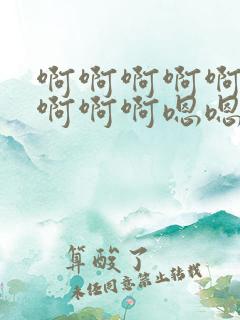 啊啊啊啊啊
啊啊啊嗯嗯
算酸了
未经同意禁止转载